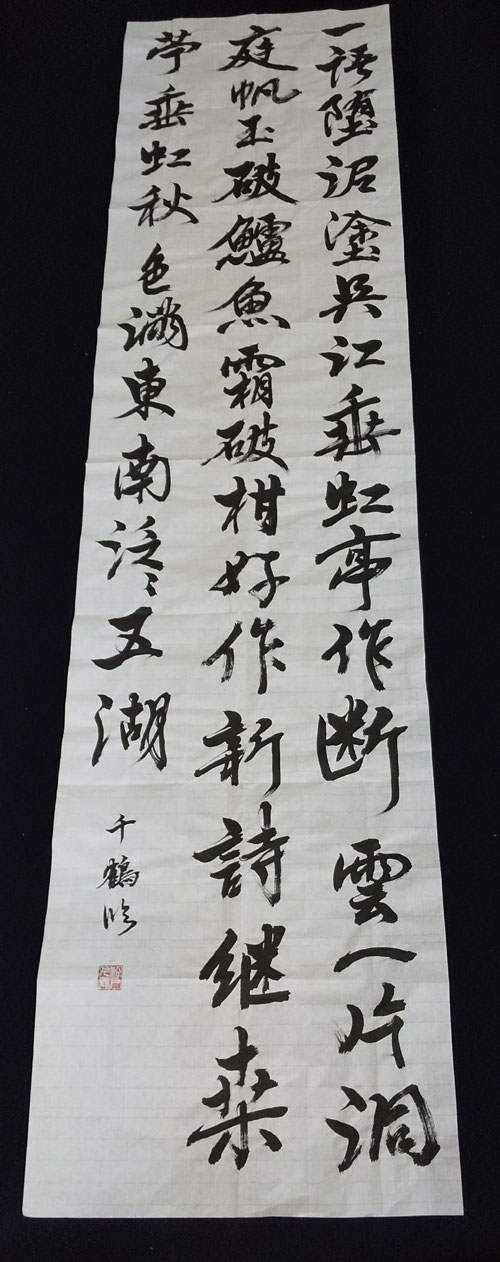 一語墮泥塗吴江垂虹亭作断雲一片洞
庭帆玉破鱸魚霜破柑好作新詩継桒
苧垂虹秋色満東南泛〻五湖
千鶴臨